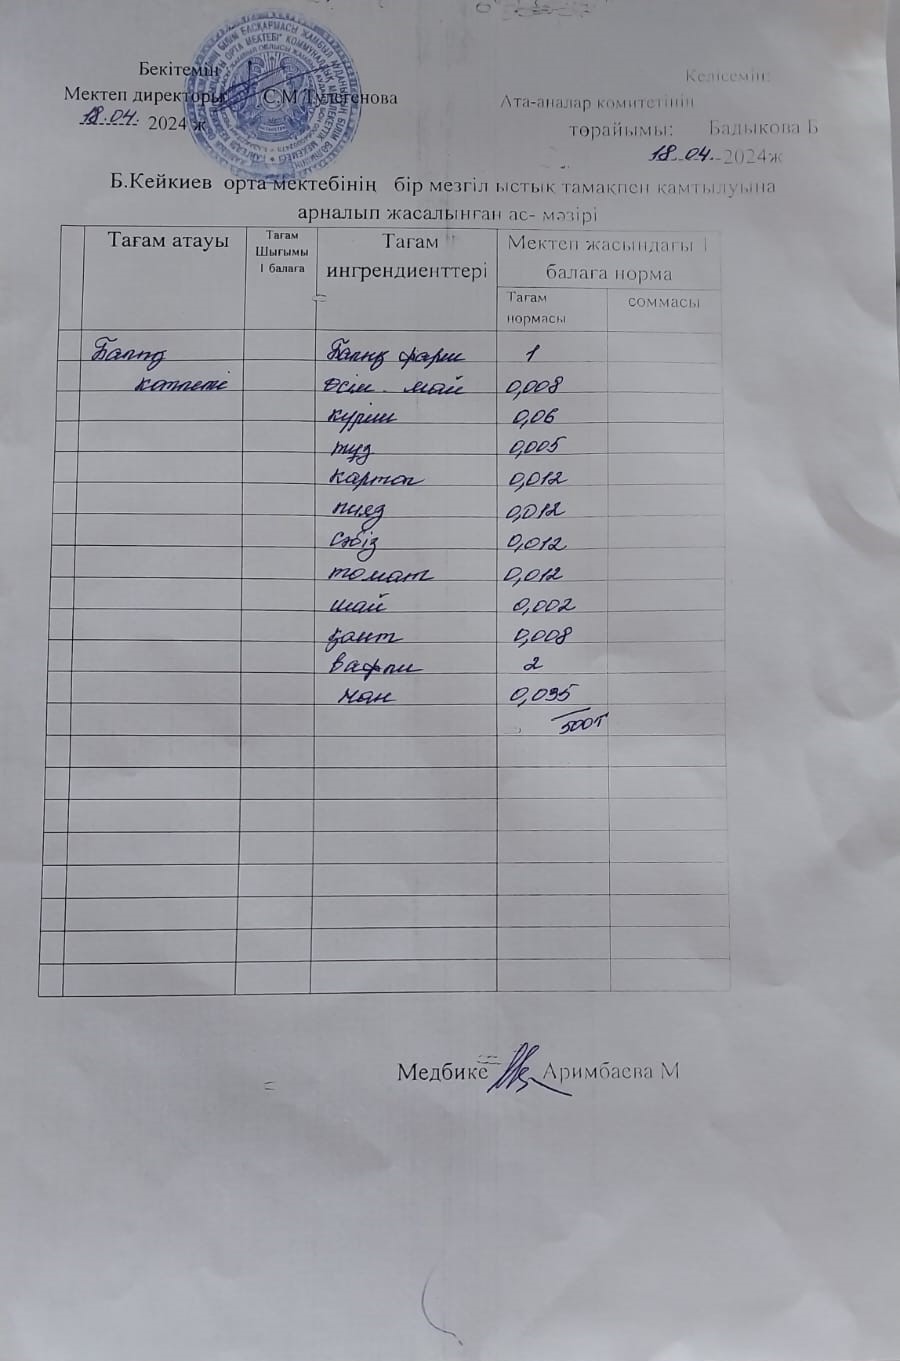 Бекітемін
Келісемін:
Мектеп директоры С.М Тулегенова
Ата-аналар комитетінің
18.04. 2024 ж
төрайымы: Бадыкова Б
18.04.-2024ж
Б.Кейкиев орта мектебінің бір мезгіл ыстық тамақпен қамтылуына
арналып жасалынған ас- мәзірі
Тағам атауы
Тағам
Шығымы
1 балаға
Тағам
ингрендиенттері
Мектеп жасындағы 1
балаға норма
Тағам
нормасы
соммасы
Балық Балық фарш 1
котлеті өсім. май 0,008
күріш 0,06
тұз 0,005
картоп 0,012
пияз 0,012
сәбіз 0,012
томат 0,012
шай 0,002
қант 0,008
вафли 2
нан 0,035
500т
Медбике Аримбаева М